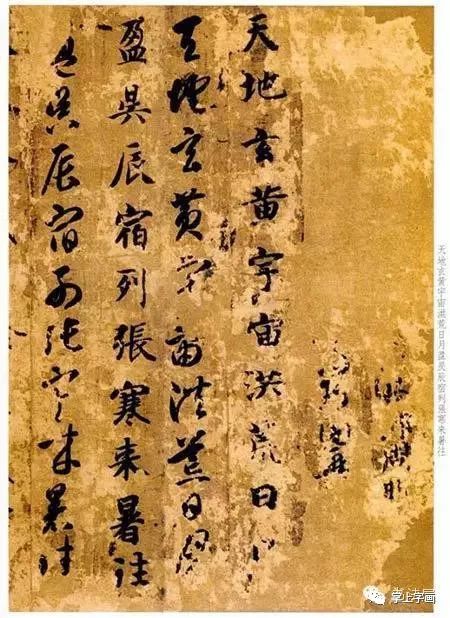 天地玄黄宇宙洪荒日月盈昃辰宿列張寒来暑往
天地玄黄宇宙洪荒日月
天地玄黄宇宙洪荒日月
盈昃辰宿列張寒来暑往
盈昃辰宿列張寒来暑往
掌上字画